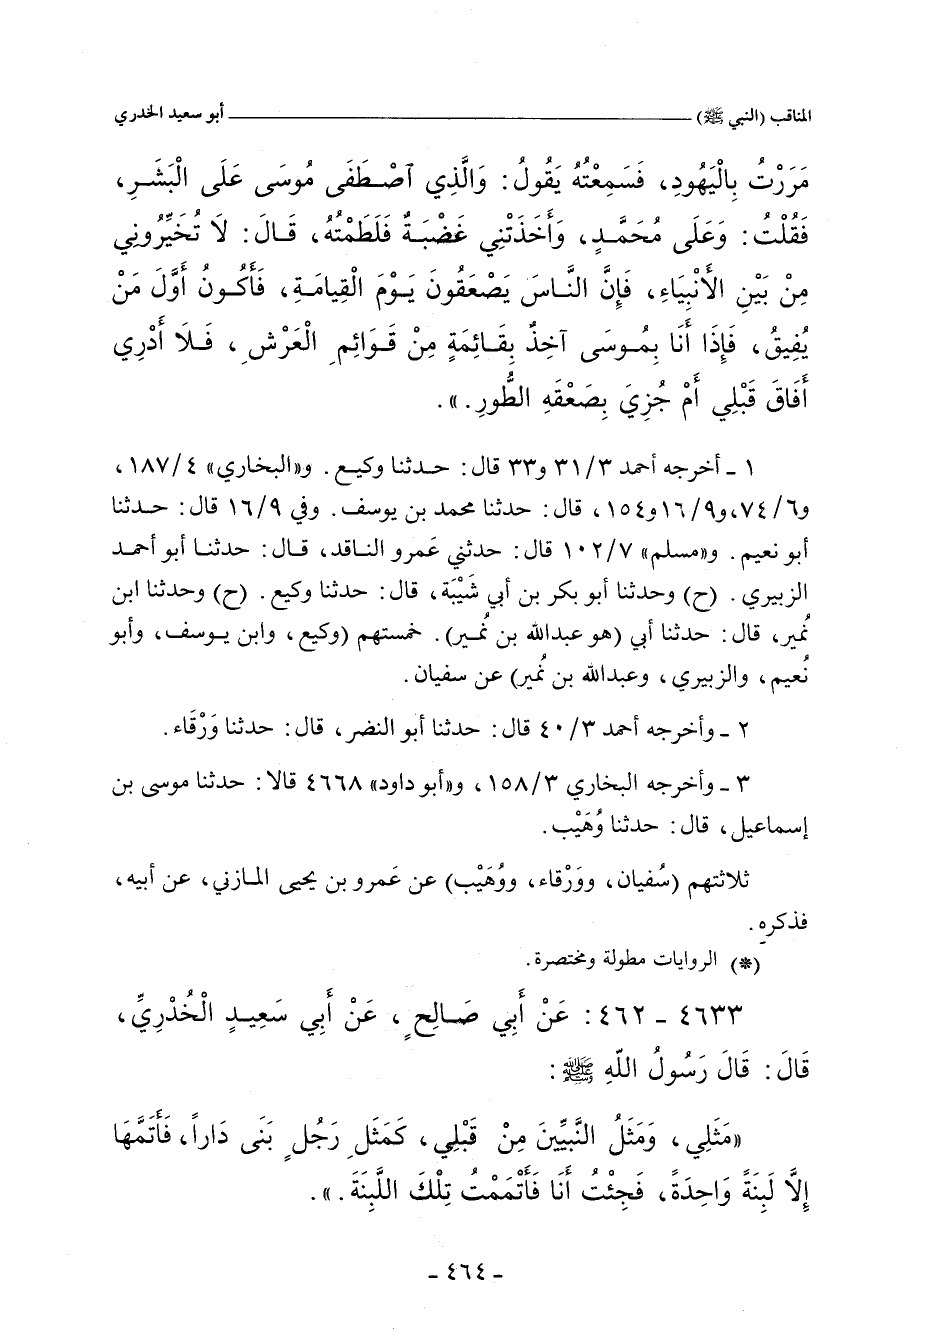 المناقب (النبي ﷺ) ـــــــــــــــــــــــــــــــــ أبو سعيد الخدري
مَرَرْتُ بِالْيَهُودِ، فَسَمِعْتُهُ يَقُولُ: وَالَّذِي آصْطَفَى مُوسَى عَلَى الْبَشَرِ،
فَقُلْتُ: وَعَلَى مُحَمَّدٍ، وَأَخَذَتْنِي غَضْبَةٌ فَلَطَمْتُهُ، قَالَ: لَا تُخَيِّرُونِي
مِنْ بَيْنِ الأَنْبِيَاءِ، فَإِنَّ النَّاسَ يَصْعَقُونَ يَوْمَ الْقِيامَةِ، فَأَكُونُ أَوَّلَ مَنْ
يُفِيقُ، فَإِذَا أَنَا بِمُوسَى آخِذٌ بِقَائِمَةٍ مِنْ قَوَائِمِ الْعَرْشِ، فَلَا أَدْرِي
أَفَاقَ قَبْلِي أَمْ جُزِيَ بِصَعْقَهِ الطُّورِ.».
١ ـ أخرجه أحمد ٣١/٣ و٣٣ قال: حدثنا وكيع. و«البخاري» ١٨٧/٤،
و٧٤/٦، و١٦/٩ و١٥٤، قال: حدثنا محمد بن يوسف. وفي ١٦/٩ قال: حدثنا
أبو نعيم. و«مسلم» ١٠٢/٧ قال: حدثني عَمرو الناقد، قال: حدثنا أبو أحمد
الزبيري. (ح) وحدثنا أبو بكر بن أبي شَيْبَة، قال: حدثنا وكيع. (ح) وحدثنا ابن
نُمير، قال: حدثنا أبي (هو عبدالله بن نُمير). خمستهم (وكيع، وابن يوسف، وأبو
نُعيم، والزبيري، وعبدالله بن نُمير) عن سفيان.
٢ ـ وأخرجه أحمد ٤٠/٣ قال: حدثنا أبو النضر، قال: حدثنا وَرْقَاء.
٣ ـ وأخرجه البخاري ١٥٨/٣، و«أبو داود» ٤٦٦٨ قالا: حدثنا موسى بن
إسماعيل، قال: حدثنا وُهَيْب.
ثلاثتهم (سُفيان، ووَرْقاء، ووُهَيْب) عن عَمرو بن يحيى المازني، عن أبيه،
فذكره.
(*) الروايات مطولة ومختصرة.
٤٦٣٣ ـ ٤٦٢: عَنْ أَبِي صَالِحٍ، عَنْ أَبِي سَعِيدٍ الْخُدْرِيِّ،
قَالَ: قَالَ رَسُولُ اللَّهِ ﷺ:
«مَثَلِي، وَمَثَلُ النَّبِيِّينَ مِنْ قَبْلِي، كَمَثَلِ رَجُلٍ بَنَى دَاراً، فَأَتَمَّهَا
إِلَّا لَبِنَةً وَاحِدَةً، فَجِئْتُ أَنَا فَأَتْمَمْتُ تِلْكَ اللَّبِنَةَ.».
ـ ٤٦٤ ـ